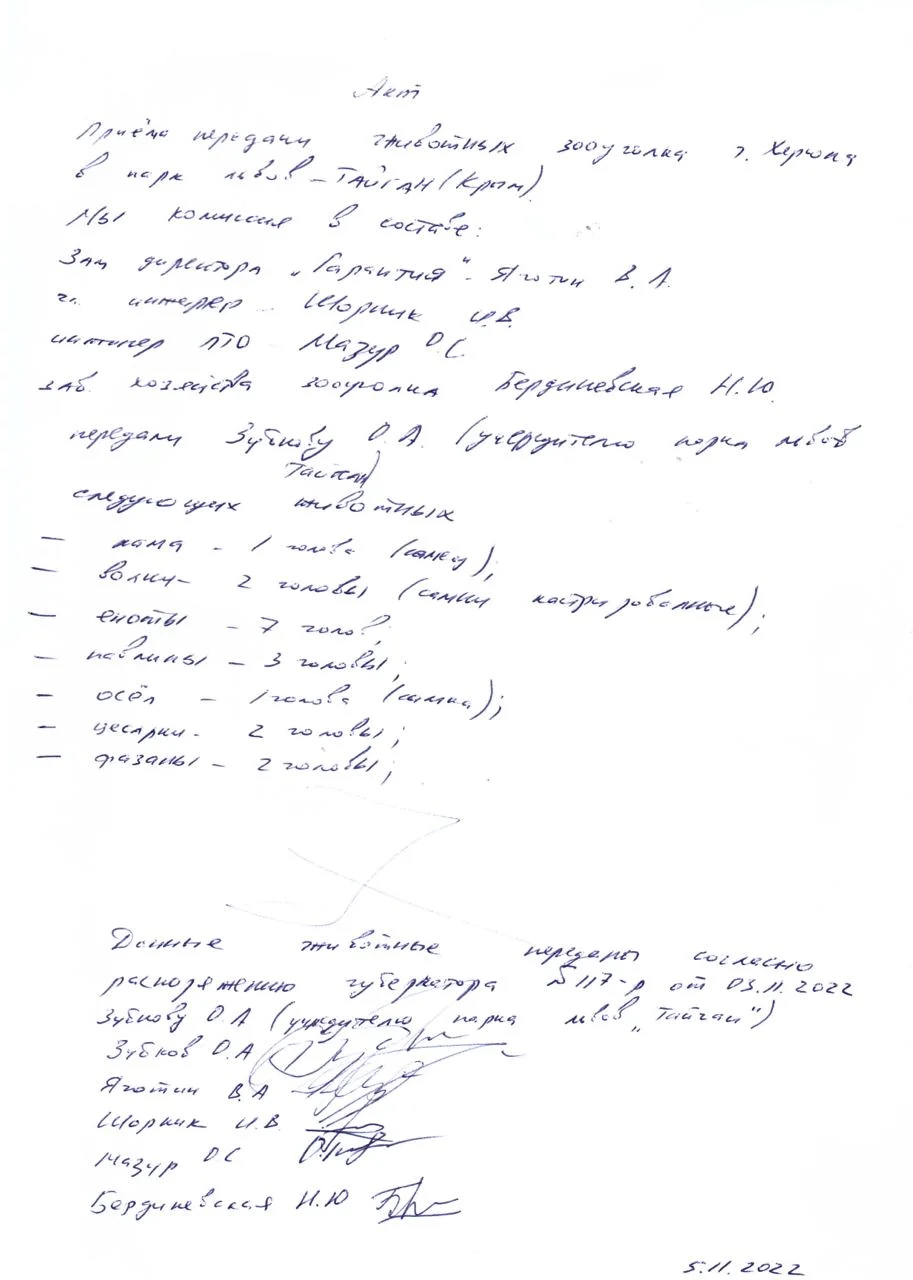 Акт
Приёма передачи животных зооуголка г. Херсона
в парк львов - ТАЙГАН (Крым)
Мы комиссия в составе:
Зам директора "Гарантия" - Яготин В. А.
гл. инженер - Шорник И.В.
инженер ПТО - Мазур О.С.
зав. хозяйства зооуголка Бердиневская Н.Ю.
передали Зубкову О.А. (учередителю парка львов
Тайган)
следующих животных
— лама - 1 голова (самец);
— волки - 2 головы (самки кастрированные);
— еноты - 7 голов;
— павлины - 3 головы;
— осёл - 1 голова (самка);
— цесарки - 2 головы;
— фазаны - 2 головы;
Данные животные переданы согласно
распоряжению губернатора №117-р от 03.11.2022
Зубкову О.А (учредителю парка львов "Тайган")
Зубков О.А
Яготин В.А
Шорник И.В.
Мазур О С
Бердиневская Н.Ю
5.11.2022